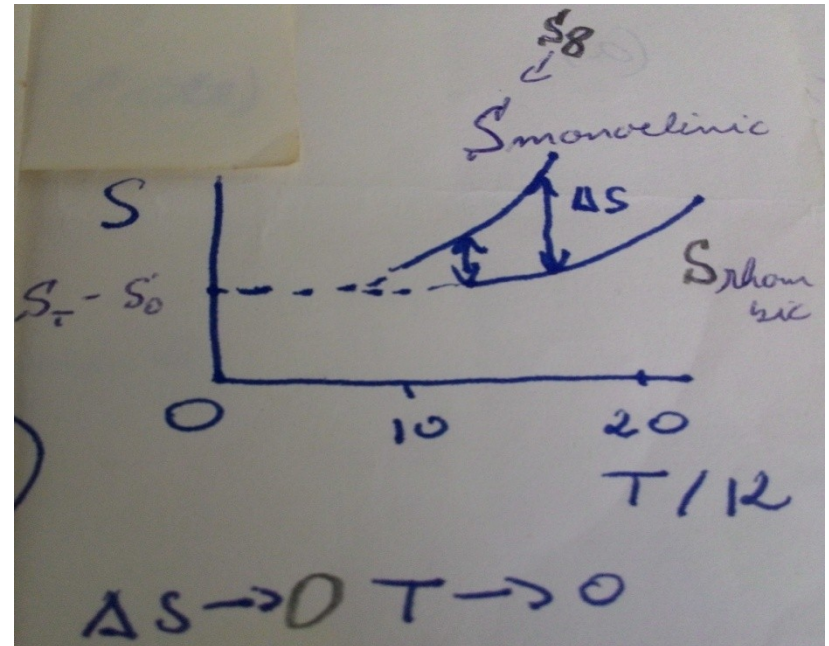 S8
Smonoclinic
S
ΔS
Srhom
bic
ST - S0
0
10
20
T/K
ΔS → 0 T → 0